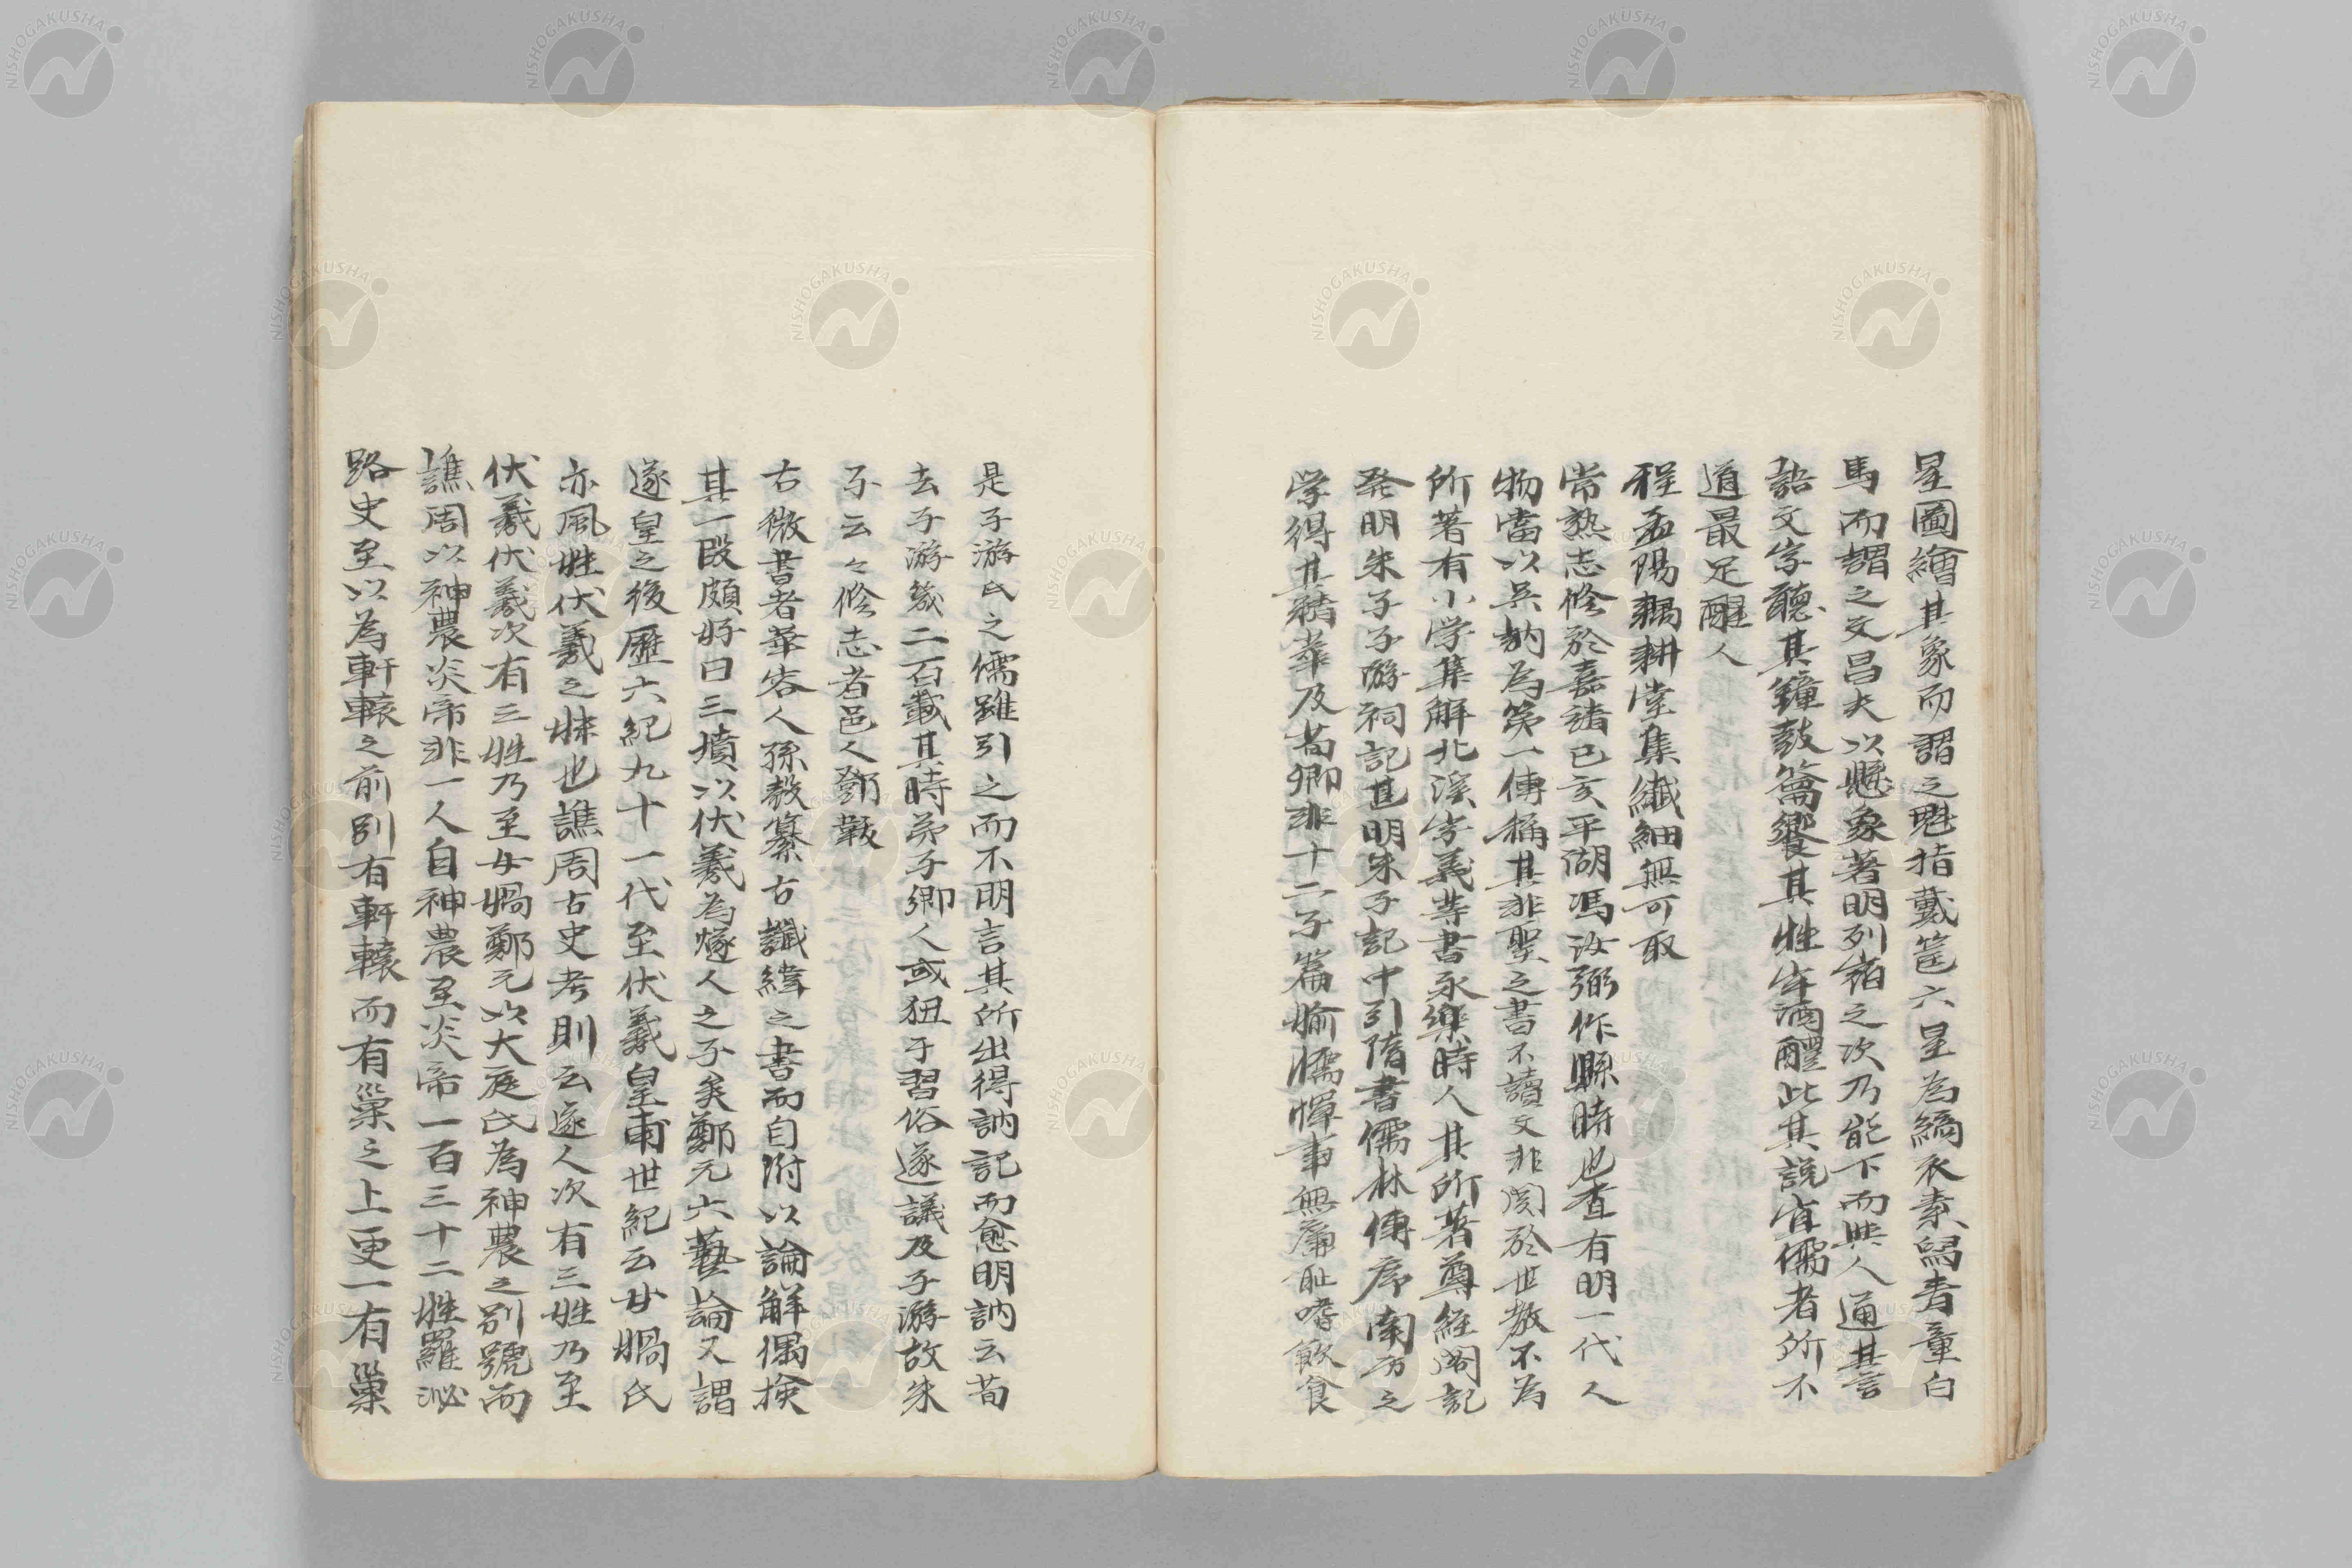 星圖繪其象而謂之魁指戴筐六星為縞衣素舄青童白
馬而謂之文昌夫以懸象著明列宿之次乃能下而與人通其言
語文字聽其鐘鼓籥饗其牲牢酒醴此其說宜儒者所不
道最足醒人
程孟陽耦耕堂集纖細無可取
常熟志修於嘉靖已亥平湖馮汝弼作縣時也查有明一代人
物當以吳訥為第一傳稱其非聖之書不讀文非関於世教不為
所著有小学集解北溪字義等書永樂時人其所著尊經閣記
発明朱子子游祠記甚明朱子記中引隋書儒林傳序南方之
学得其精華及荀卿非十二子篇偷懦憚事無廉耻嗜飲食
是子游氏之儒雖引之而不明言其所出得訥記而愈明訥云荀
去子游幾二百載其時弟子卿人或狃于習俗遂議及子游故朱
子云々修志者邑人鄧韍
古微書者華容人孫瑴纂古讖緯之書而自附以論解偶撿
其一段頗好曰三墳以伏羲為燧人之子矣鄭元六藝論又謂
遂皇之後歷六紀九十一代至伏羲皇甫世紀云女媧氏
亦風姓伏羲之妹也譙周古史考則云遂人次有三姓乃至
伏羲伏羲次有三姓乃至女媧鄭元以大庭氏為神農之別號而
譙周以神農炎帝非一人自神農至炎帝一百三十二姓羅泌
路史至以為軒轅之前別有軒轅而有巢之上更一有巢